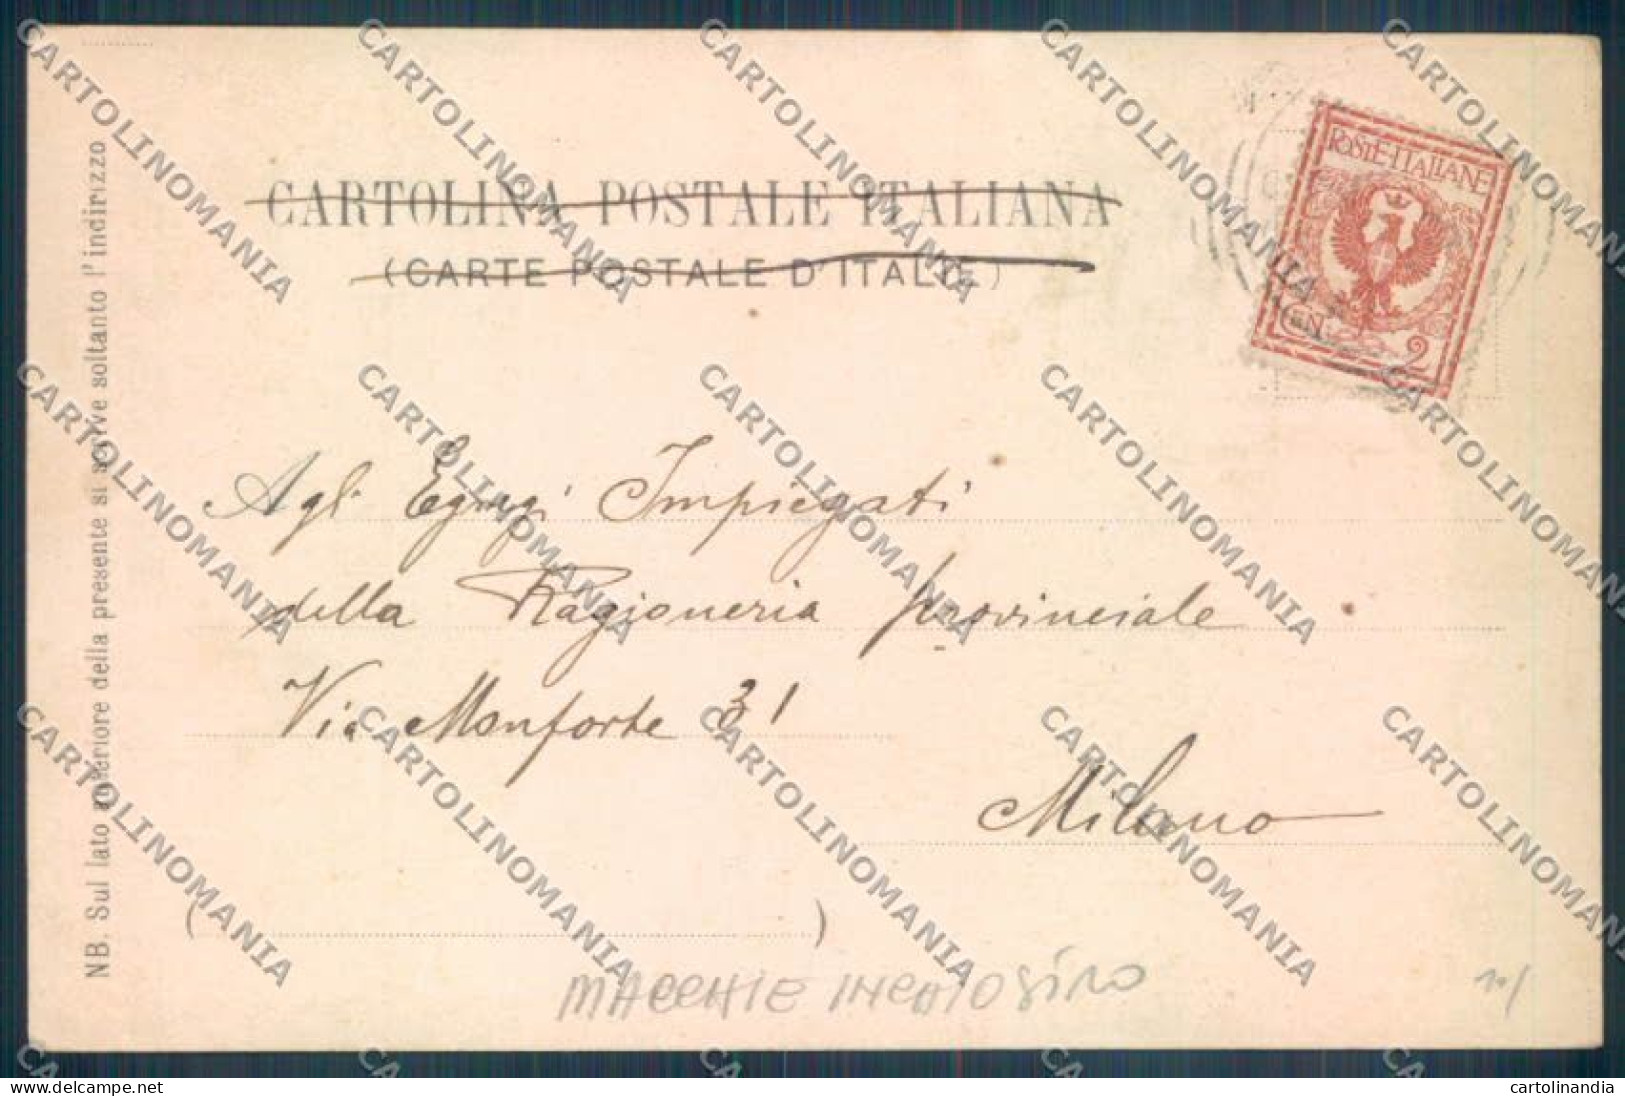 CARTOLINA POSTALE ITALIANA
(CARTE POSTALE D'ITALIE)
POSTE·ITALIANE
CEN. 2
Agli Egregi Impiegati
della Ragioneria provinciale
Via Monforte 31
Milano
( )
MACCHIE INCHIOSTRO
NB. Sul lato anteriore della presente si scrive soltanto l'indirizzo
CARTOLINOMANIA
delcampe.net
cartolinandia